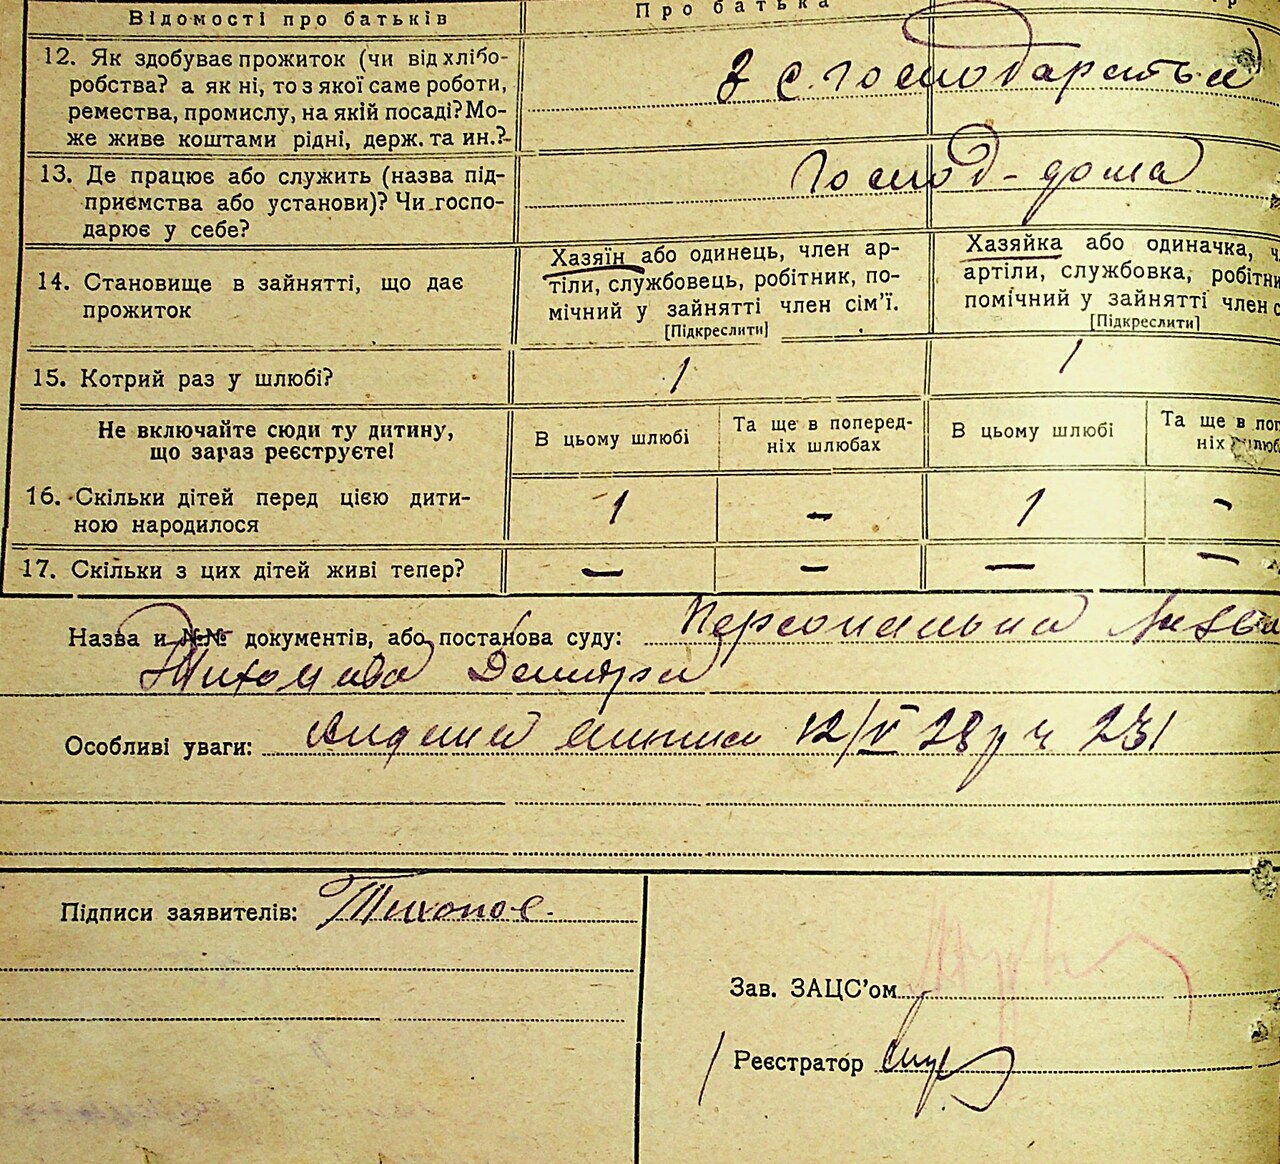 Відомості про батьків
Про батька
12. Як здобуває прожиток (чи від хлібо-
робства? а як ні, то з якої саме роботи,
ремества, промислу, на якій посаді? Мо-
же живе коштами рідні, держ. та ин.?
з с. господарства
13. Де працює або служить (назва під-
приємства або установи)? Чи госпо-
дарює у себе?
Господ-дома
14. Становище в зайнятті, що дає
прожиток
Хазяїн або одинець, член ар-
тіли, службовець, робітник, по-
мічний у зайнятті член сім'ї.
[Підкреслити]
Хазяйка або одиначка,
артіли, службовка,
помічний у зайнятті член
[Підкреслити]
15. Котрий раз у шлюбі?
1
1
Не включайте сюди ту дитину,
що зараз реєструєте!
В цьому шлюбі
Та ще в поперед-
ніх шлюбах
В цьому шлюбі
Та ще в
ніх
16. Скільки дітей перед цією дити-
ною народилося
1 - 1 -
17. Скільки з цих дітей живі тепер?
- - - -
Назва и №№ документів, або постанова суду: Персональна
Особливі уваги: 12/V 28р ч 231
Підписи заявителів: Тихонов
Зав. ЗАЦС'ом
Реєстратор